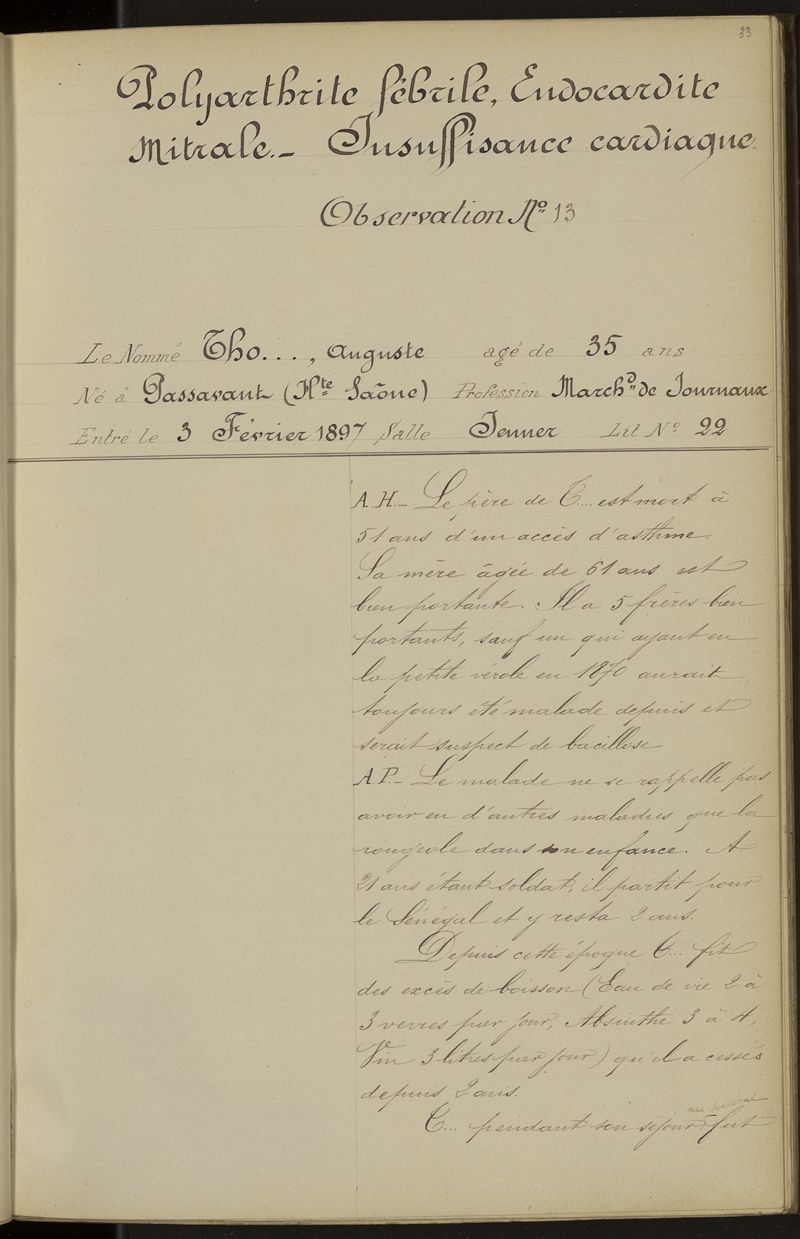 33
Polyarthrite fébrile, Endocardite
Mitrale._ Insuffisance cardiaque.
Observation Nº 13
Le Nommé Tho..., Auguste agé de 35 ans
Né à Passavant (Hte Saône) Profession Marchd de Journaux
Entré le 3 Février 1897 Salle Jenner Lit Nº 22
A.H._ Le père de T... est mort à
51 ans d'un accès d'asthme.
Sa mère âgée de 61 ans est
bien portante. Il a 5 frères bien
portants, sauf un qui ayant eu
la petite vérole en 1870 aurait
toujours été malade depuis et
serait suspect de bacillose
A.P._ Le malade ne se rappelle pas
avoir eu d'autres maladies que la
rougeole dans son enfance. A
21 ans étant soldat, il partit pour
le Sénégal et y resta 2 ans.
Depuis cette époque T... fit
des excès de boisson (Eau de vie 2 à
3 verres par jour, Absinthe 3 à 4,
Vin 3 litres par jour) qu'il a cessés
depuis 2 ans.
au Sénégal
T... pendant son séjour fut